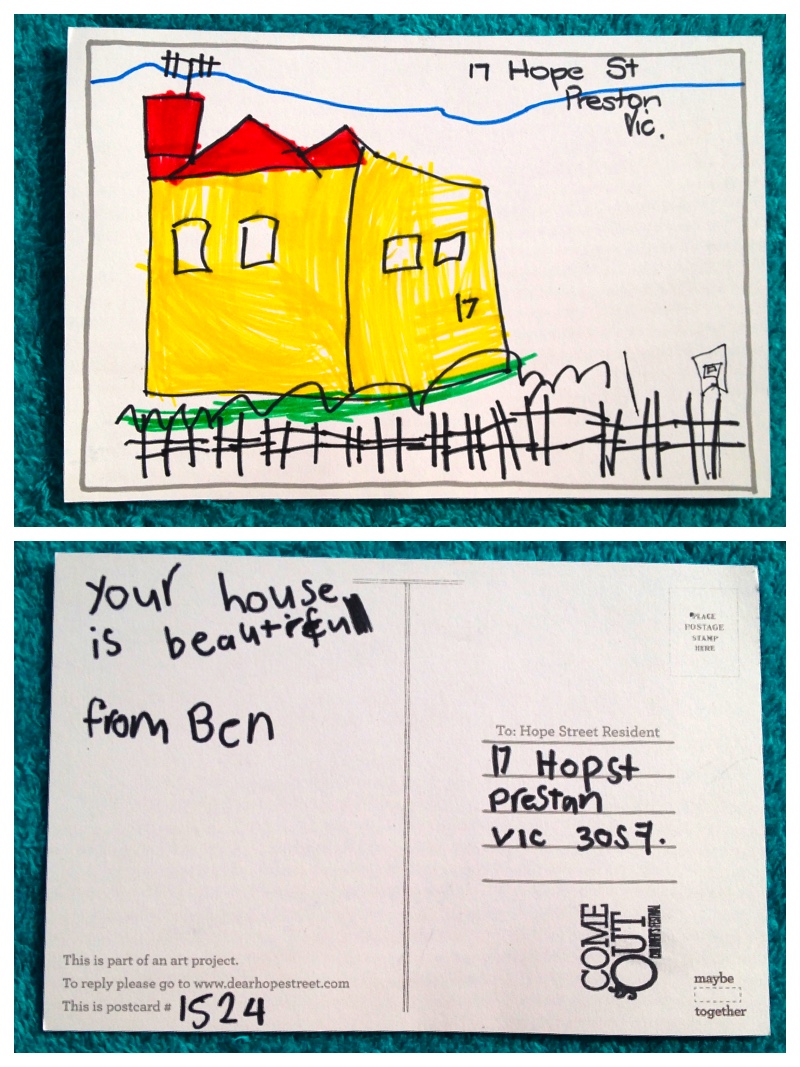 17 Hope St
Preston
Vic.
17
your house
is beautiful
from Ben
PLACE
POSTAGE
STAMP
HERE
To: Hope Street Resident
17 Hopst
Prestan
Vic 3057.
COME
OUT
CHILDREN'S FESTIVAL
This is part of an art project.
To reply please go to www.dearhopestreet.com
This is postcard # 1524
maybe
together